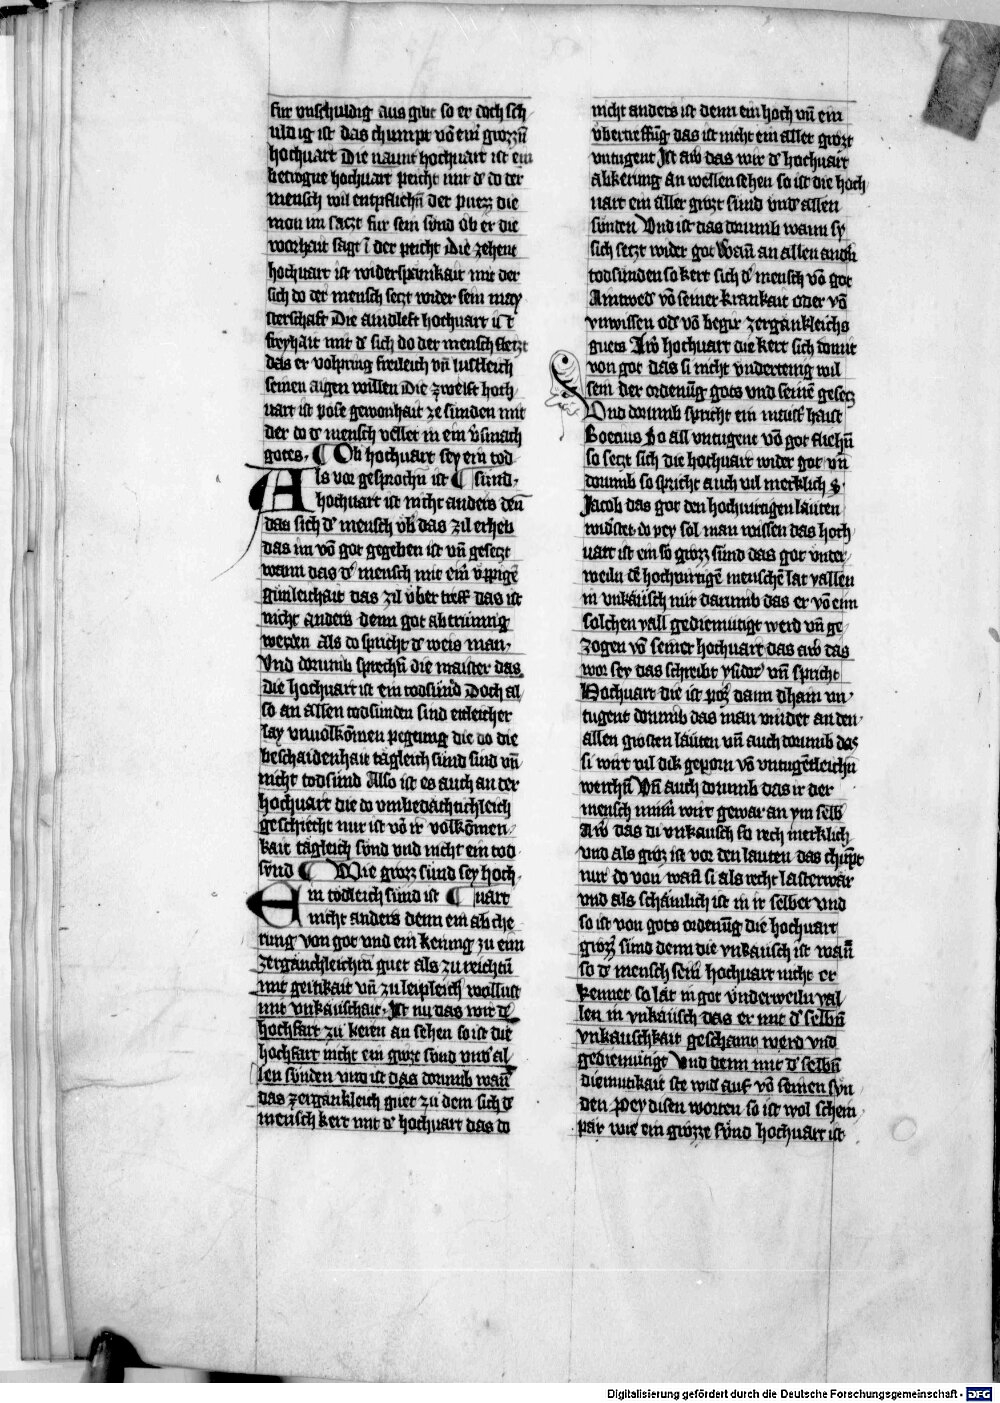 für vnschuldig aus gibt so er doch sch
uldig ist das chumpt võ eim̃ grozzñ
hochuart Die naunt hochuart ist ein
betrogne hochuart peicht mit d̾ do der
mensch wil entpfliehñ der puezz die
mon im saczt für sein sünd ob er die
worhait sagt ĩ der peicht Die zehent
hochuart ist widerspänikait mit der
sich do der mensch seczt wider sein may
sterschaft Die aindleft hochuart ist
freyhait mit d̾ sich do der mensch fleizt
das er volpring freileich vñ lustleich
seinen aigen willen Die zwelft hoch
uart ist pöse gewonhait ze sünden mit
der do d̾ mensch vellet in ein v̾smäch
gotes. ¶ Ob hochuart sey ein tod
Als vor gesprochñ ist ¶ sünd.
hochuart ist nicht anders deñ
das sich d̾ mensch vb̾ das zil erheb
das im võ got gegeben ist vñ gesetzt
wann das d̾ mensch mit eim̃ v̈ppigẽ
günleichait das zil über treff das ist
nicht anders denn got abtrünnig
werden als do spricht d̾ weis man.
Vnd dorumb sprechñ die maister das
die hochuart ist ein todsünd Doch al
so an allen todsünden sind etleicher
lay vnuolkõmen pegirung die do die
beschaidenhait tägleich sünd sind vñ
nicht todsünd Also ist es auch an der
hochuart die do vmbedächtichleich
geschiecht mir ist võ ir volkõmen
kait tägleich sönd vnd nicht ein tod
sönd ¶ Wie gross sünd sey hoch
Ein tödleich sünd ist ¶ uart
nicht anders denn ein ab che
rung von got vnd ein kerung zu eim
zergänchleichñ guet als zu reichtũ
mit geitikait vñ zu leipleich wollust
mit vnkäuschait. Ist nu das wir d̾
hochfart zu keren an sehen so ist die
hochfart nicht ein gröst sönd vnd̾ al
len sünden vnd ist das dorumb wañ
das zergänkleich guet zu dem sich d̾
mensch kert mit d̾ hochuart das do
nicht anders ist denn ein hoch vñ ein
vberneffũg das ist nicht ein aller gröst
vntugent Ist aw̃ das wir d̾ hochuart
abkerung an wellen sehen so ist die hoch
uart ein aller gröst sünd vnd̾ allen
sünden Vnd ist das dorumb wann sy
sich setzt wider got Wañ an allen andñ
todsünden so kert sich d̾ mensch võ got
Aintwed̾ võ seiner krankait oder võ
vnwissen od̾ võ begir zergänkleichs
guets Aw̃ hochuart die kert sich domit
von got das si nicht vndertenig wil
sein der ordenũg gots vnd seinẽ gesetz
Vnd dorumb spricht ein maist̾ haist
Boecius So all vntugent võ got fliehñ
so setzt sich die hochuart wider got vñ
dorumb so spricht auch vil merklich S.
Jacob das got den hochuirtigen läuten
wid̾stet do pey sol man wissen das hoch
uart ist ein so gross sünd das got vnter
weiln dẽ hochuirtigẽ menschẽ lat vallen
in vnkäusch nur darumb das er võ eim
solchen vall gediemütigt werd vñ ge
zogen võ seiner hochuart das aw̃ das
wor sey das schreibt ysidor̾ vñ spricht
Hochuart die ist pös̾ dann dhain vn
tugent dorumb das man vindet an den
allen grösten läuten vñ auch dorumb das
si wirt vil dik geporn võ vntugẽtleichñ
werchñ Vñ auch dorumb das ir der
mensch minn̾ wirt gewar an ym selb
Aw̃ das di vnkäusch so rech merklich
vnd als gröz ist vor den läuten das chũpt
nur do von wañ si als recht lasterwär
vnd als schämlich ist in ir selber vnd
so ist von gots ordenũg die hochuart
gröss̾ sünd denn die vnkäusch ist wañ
so d̾ mensch sein̾ hochuart nicht er
kennet so lät in got vnderweiln val
len in vnkäusch das er mit d̾ selbñ
vnkäuschkait geschamt werd vnd
gediemütigt Vnd denn mit d̾ selbñ
diemütikait ste wid̾ auf võ seinen sün
den Pey disen worten so ist wol schein
pär wie ein grözze sünd hochuart ist
Digitalisierung gefördert durch die Deutsche Forschungsgemeinschaft - DFG